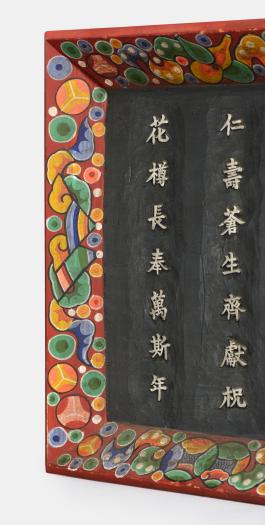 仁壽蒼生齊獻祝
花樽長奉萬斯年